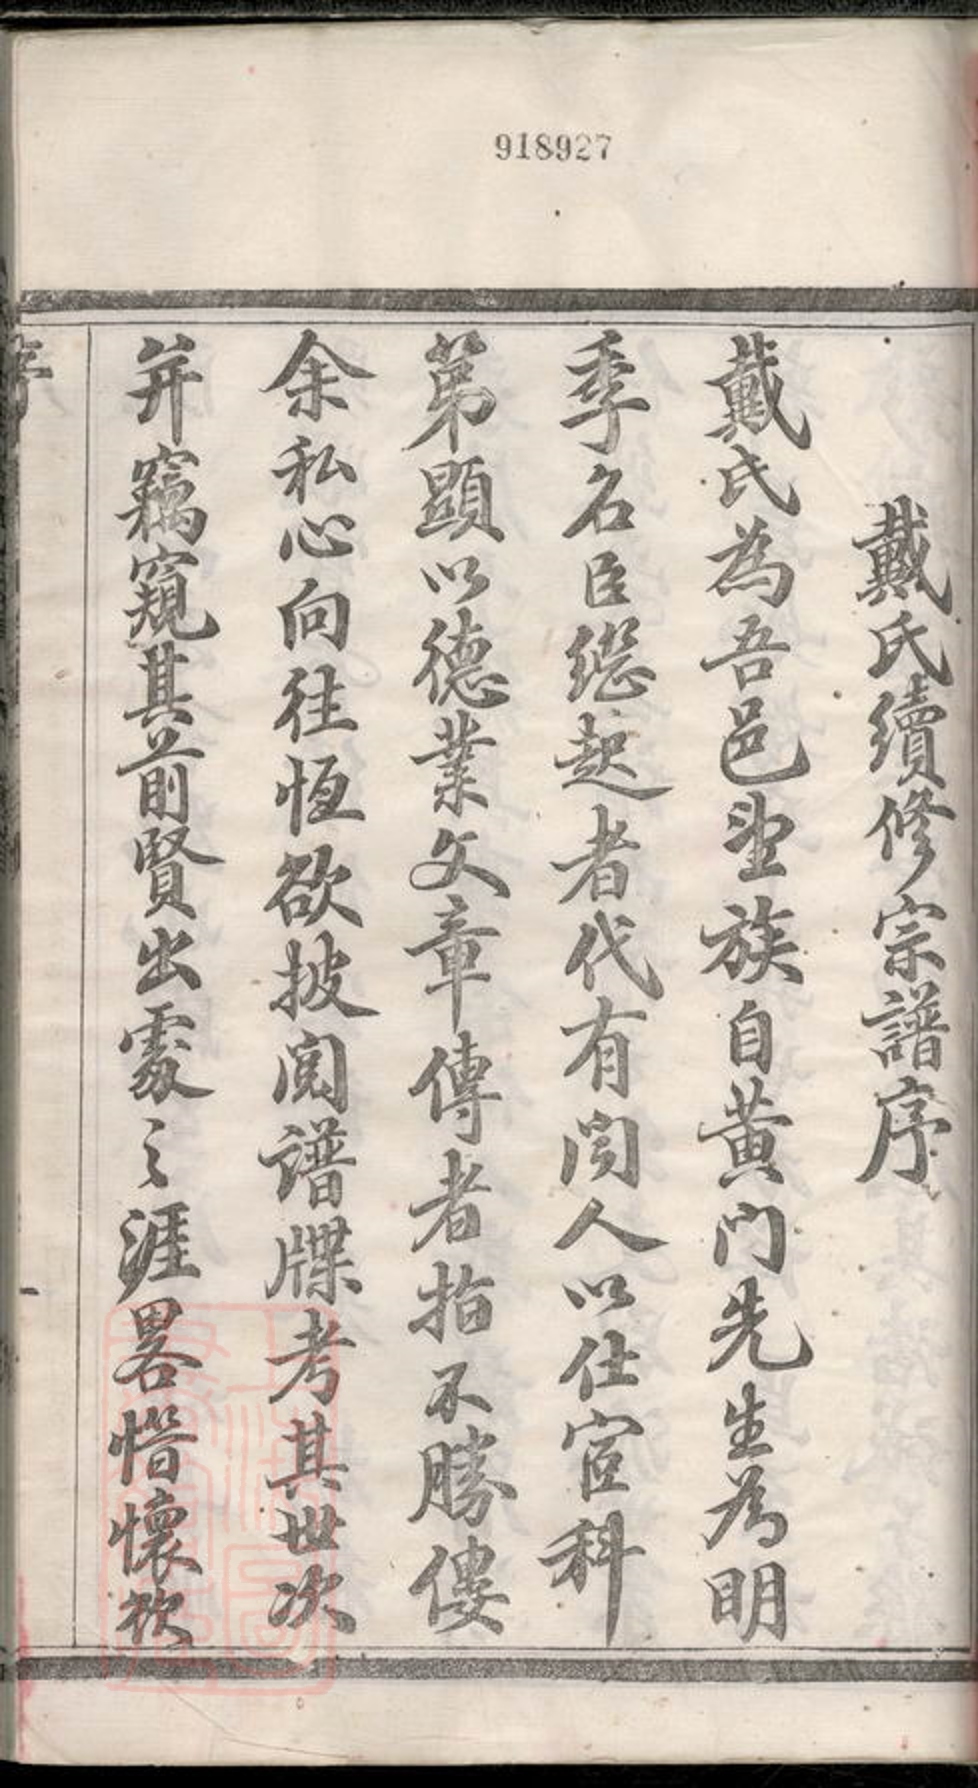 918927
戴氏續修宗譜序
戴氏為吾邑望族自黄门先生為明
季名臣继起者代有闻人以仕宦科
第顯以德業文章傳者指不勝僂
余私心向往恆欲披阅譜牒考其世次
并竊窺其前賢出處之涯畧惜懷欲
序